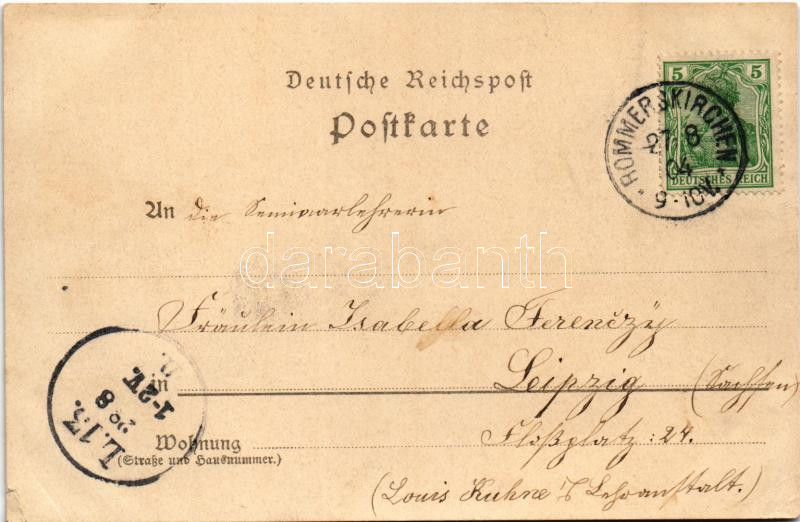 Deutsche Reichspost
Postkarte
5 5
DEUTSCHES REICH
ROMMERSKIRCHEN
27 8
04
9-10V.
An die Seminarlehrerin
darabanth
Fräulein Isabella Ferenczy
in Leipzig (Sachsen)
L.13.
8
1-2V.
Wohnung Floßplatz: 24.
(Straße und Hausnummer.)
(Louis Kuhne's Lehranstalt.)